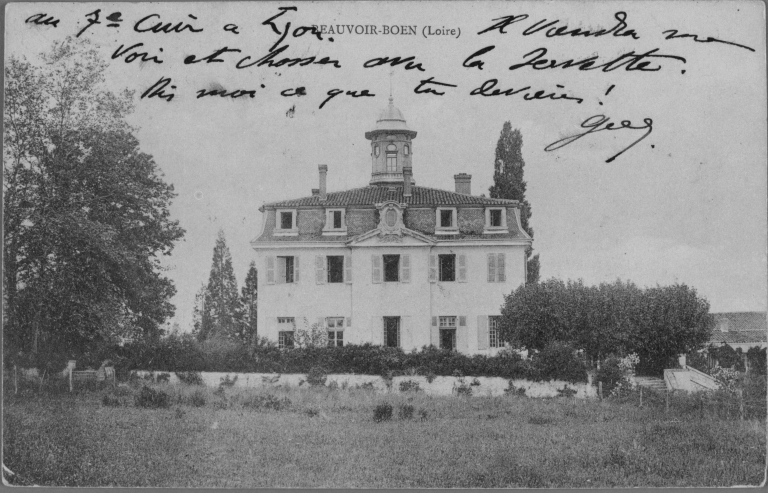 au 7e Cuir a Lyon. Il viendra me
BEAUVOIR-BOEN (Loire)
voir et chasser avec la
Dis moi ce que tu deviens !